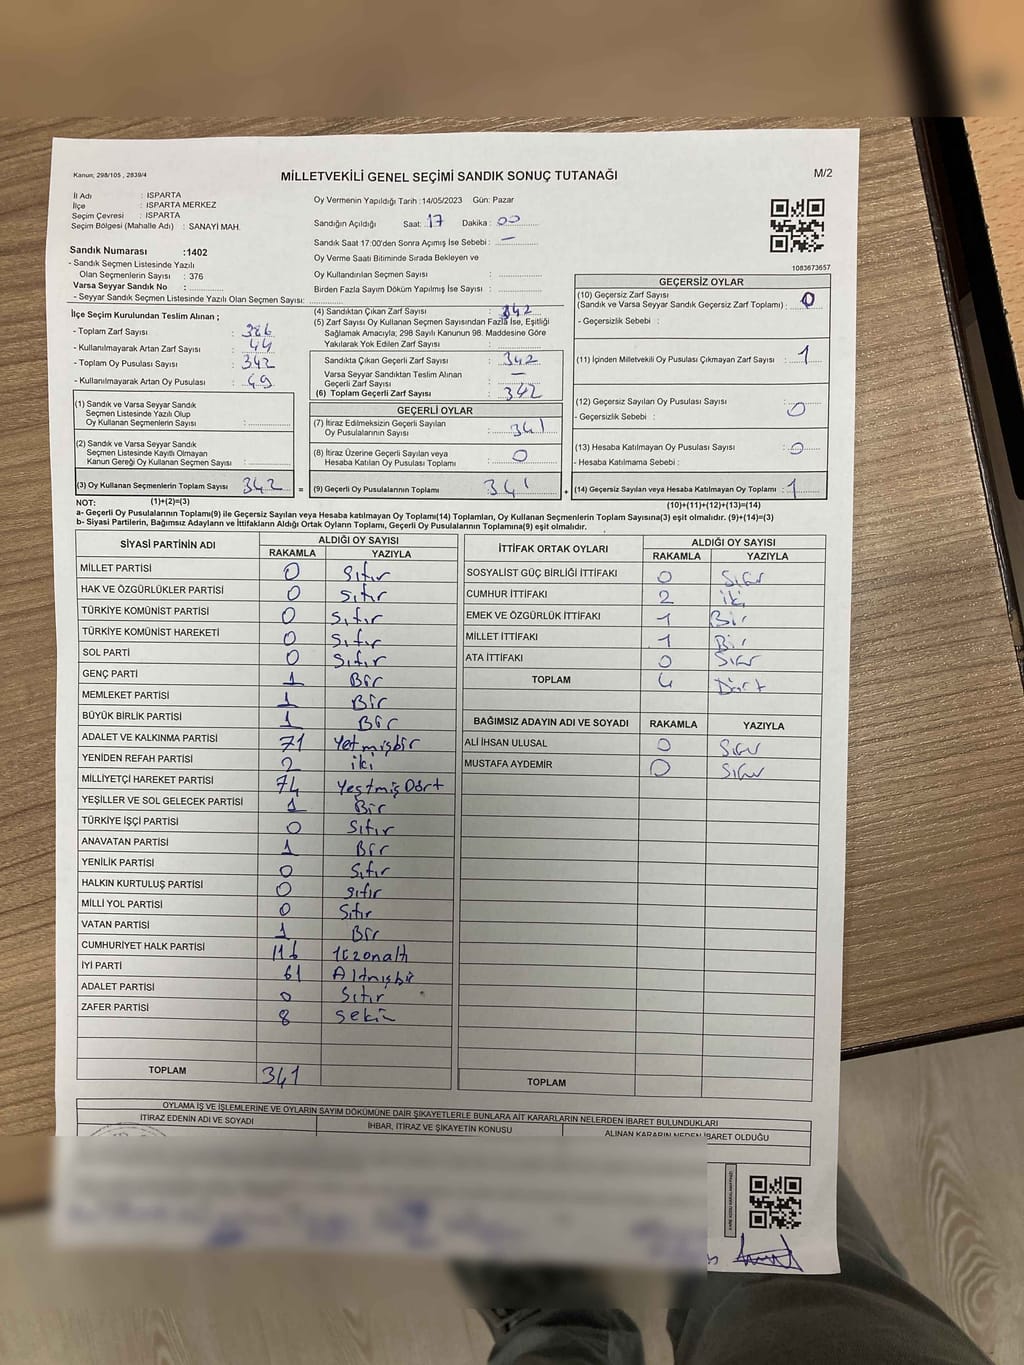 Kanun; 298/105 , 2839/4
MİLLETVEKİLİ GENEL SEÇİMİ SANDIK SONUÇ TUTANAĞI
M/2
İl Adı : ISPARTA
İlçe : ISPARTA MERKEZ
Seçim Çevresi : ISPARTA
Seçim Bölgesi (Mahalle Adı) : SANAYİ MAH.
Sandık Numarası :1402
- Sandık Seçmen Listesinde Yazılı
Olan Seçmenlerin Sayısı : 376
Varsa Seyyar Sandık No :
- Seyyar Sandık Seçmen Listesinde Yazılı Olan Seçmen Sayısı:
Oy Vermenin Yapıldığı Tarih :14/05/2023 Gün: Pazar
Sandığın Açıldığı Saat: 17 Dakika : 00
Sandık Saat 17:00'den Sonra Açımış İse Sebebi : —
Oy Verme Saati Bitiminde Sırada Bekleyen ve
Oy Kullandırılan Seçmen Sayısı :
Birden Fazla Sayım Döküm Yapılmış İse Sayısı :
1083673657
İlçe Seçim Kurulundan Teslim Alınan ;
- Toplam Zarf Sayısı : 386
- Kullanılmayarak Artan Zarf Sayısı : 44
- Toplam Oy Pusulası Sayısı : 342
- Kullanılmayarak Artan Oy Pusulası : 49
(1) Sandık ve Varsa Seyyar Sandık
Seçmen Listesinde Yazılı Olup
Oy Kullanan Seçmenlerin Sayısı :
(2) Sandık ve Varsa Seyyar Sandık
Seçmen Listesinde Kayıtlı Olmayan
Kanun Gereği Oy Kullanan Seçmen Sayısı :
(3) Oy Kullanan Seçmenlerin Toplam Sayısı : 342 =
(4) Sandıktan Çıkan Zarf Sayısı : 342
(5) Zarf Sayısı Oy Kullanan Seçmen Sayısından Fazla İse, Eşitliği
Sağlamak Amacıyla; 298 Sayılı Kanunun 98. Maddesine Göre
Yakılarak Yok Edilen Zarf Sayısı :
Sandıkta Çıkan Geçerli Zarf Sayısı : 342
Varsa Seyyar Sandıktan Teslim Alınan
Geçerli Zarf Sayısı : —
(6) Toplam Geçerli Zarf Sayısı : 342
GEÇERLİ OYLAR
(7) İtiraz Edilmeksizin Geçerli Sayılan
Oy Pusulalarının Sayısı : 341
(8) İtiraz Üzerine Geçerli Sayılan veya
Hesaba Katılan Oy Pusulası Toplamı : 0
(9) Geçerli Oy Pusulalarının Toplamı : 341 +
GEÇERSİZ OYLAR
(10) Geçersiz Zarf Sayısı
(Sandık ve Varsa Seyyar Sandık Geçersiz Zarf Toplamı) : 0
- Geçersizlik Sebebi :
(11) İçinden Milletvekili Oy Pusulası Çıkmayan Zarf Sayısı : 1
(12) Geçersiz Sayılan Oy Pusulası Sayısı : 0
- Geçersizlik Sebebi :
(13) Hesaba Katılmayan Oy Pusulası Sayısı : 0
- Hesaba Katılmama Sebebi :
(14) Geçersiz Sayılan veya Hesaba Katılmayan Oy Toplamı : 1
NOT: (1)+(2)=(3) (10)+(11)+(12)+(13)=(14)
a- Geçerli Oy Pusulalarının Toplamı(9) ile Geçersiz Sayılan veya Hesaba katılmayan Oy Toplamı(14) Toplamları, Oy Kullanan Seçmenlerin Toplam Sayısına(3) eşit olmalıdır. (9)+(14)=(3)
b- Siyasi Partilerin, Bağımsız Adayların ve İttifakların Aldığı Ortak Oyların Toplamı, Geçerli Oy Pusulalarının Toplamına(9) eşit olmalıdır.
SİYASİ PARTİNİN ADI ALDIĞI OY SAYISI
RAKAMLA YAZIYLA
MİLLET PARTİSİ 0 Sıfır
HAK VE ÖZGÜRLÜKLER PARTİSİ 0 Sıfır
TÜRKİYE KOMÜNİST PARTİSİ 0 Sıfır
TÜRKİYE KOMÜNİST HAREKETİ 0 Sıfır
SOL PARTİ 0 Sıfır
GENÇ PARTİ 1 Bir
MEMLEKET PARTİSİ 1 Bir
BÜYÜK BİRLİK PARTİSİ 1 Bir
ADALET VE KALKINMA PARTİSİ 71 Yetmişbir
YENİDEN REFAH PARTİSİ 2 iki
MİLLİYETÇİ HAREKET PARTİSİ 74 YeştmişDört
YEŞİLLER VE SOL GELECEK PARTİSİ 1 Bir
TÜRKİYE İŞÇİ PARTİSİ 0 Sıfır
ANAVATAN PARTİSİ 1 Bir
YENİLİK PARTİSİ 0 Sıfır
HALKIN KURTULUŞ PARTİSİ 0 sıfır
MİLLİ YOL PARTİSİ 0 Sıfır
VATAN PARTİSİ 1 Bir
CUMHURİYET HALK PARTİSİ 116 Yüzonaltı
İYİ PARTİ 61 Altmışbir
ADALET PARTİSİ 0 Sıfır
ZAFER PARTİSİ 8 Sekiz
TOPLAM 341
İTTİFAK ORTAK OYLARI ALDIĞI OY SAYISI
RAKAMLA YAZIYLA
SOSYALİST GÜÇ BİRLİĞİ İTTİFAKI 0 Sıfır
CUMHUR İTTİFAKI 2 iki
EMEK VE ÖZGÜRLÜK İTTİFAKI 1 Bir
MİLLET İTTİFAKI 1 Bir
ATA İTTİFAKI 0 Sıfır
TOPLAM 4 Dört
BAĞIMSIZ ADAYIN ADI VE SOYADI RAKAMLA YAZIYLA
ALİ İHSAN ULUSAL 0 Sıfır
MUSTAFA AYDEMİR 0 Sıfır
TOPLAM
OYLAMA İŞ VE İŞLEMLERİNE VE OYLARIN SAYIM DÖKÜMÜNE DAİR ŞİKAYETLERLE BUNLARA AİT KARARLARIN NELERDEN İBARET BULUNDUKLARI
İTİRAZ EDENİN ADI VE SOYADI İHBAR, İTİRAZ VE ŞİKAYETİN KONUSU ALINAN KARARIN NEDEN İBARET OLDUĞU